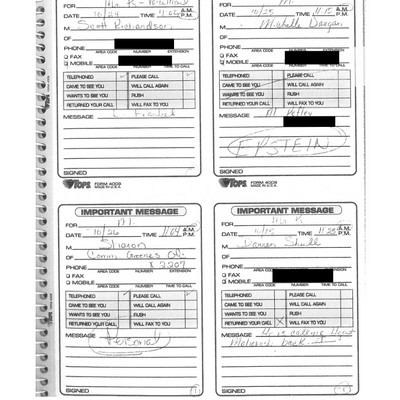 FOR
DATE 10/24 TIME A.M. P.M.
M Scott Richardson
OF
PHONE
AREA CODE NUMBER EXTENSION
FAX
MOBILE
AREA CODE NUMBER TIME TO CALL
TELEPHONED PLEASE CALL
CAME TO SEE YOU WILL CALL AGAIN
WANTS TO SEE YOU RUSH
RETURNED YOUR CALL WILL FAX TO YOU
MESSAGE
SIGNED
TOPS FORM 4009
MADE IN U.S.A.
FOR
DATE 10/25 TIME 11:15 A.M. P.M.
M Michelle
OF
PHONE
AREA CODE NUMBER EXTENSION
FAX
MOBILE
AREA CODE NUMBER TIME TO CALL
TELEPHONED PLEASE CALL
CAME TO SEE YOU WILL CALL AGAIN
WANTS TO SEE YOU RUSH
RETURNED YOUR CALL WILL FAX TO YOU
MESSAGE
EPSTEIN
SIGNED
TOPS FORM 4009
MADE IN U.S.A.
IMPORTANT MESSAGE
FOR M.
DATE 10/26 TIME 11:04 A.M. P.M.
M Sharon
OF
PHONE X 2207
AREA CODE NUMBER EXTENSION
FAX
MOBILE
AREA CODE NUMBER TIME TO CALL
TELEPHONED PLEASE CALL
CAME TO SEE YOU WILL CALL AGAIN
WANTS TO SEE YOU RUSH
RETURNED YOUR CALL WILL FAX TO YOU
MESSAGE
Personal
SIGNED
IMPORTANT MESSAGE
FOR Mr. K
DATE 10/25 TIME A.M. P.M.
M Darren
OF
PHONE
AREA CODE NUMBER EXTENSION
FAX
MOBILE
AREA CODE NUMBER TIME TO CALL
TELEPHONED PLEASE CALL
CAME TO SEE YOU WILL CALL AGAIN
WANTS TO SEE YOU RUSH
RETURNED YOUR CALL X WILL FAX TO YOU
MESSAGE calling
back
SIGNED